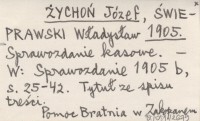 ŻYCHOŃ Józef, ŚWIE-
PRAWSKI Władysław 1905.
Sprawozdanie kasowe. —
W: Sprawozdanie 1905 b,
s. 25-42. Tytuł ze spisu
treści.
Pomoc Bratnia w Zakopanem